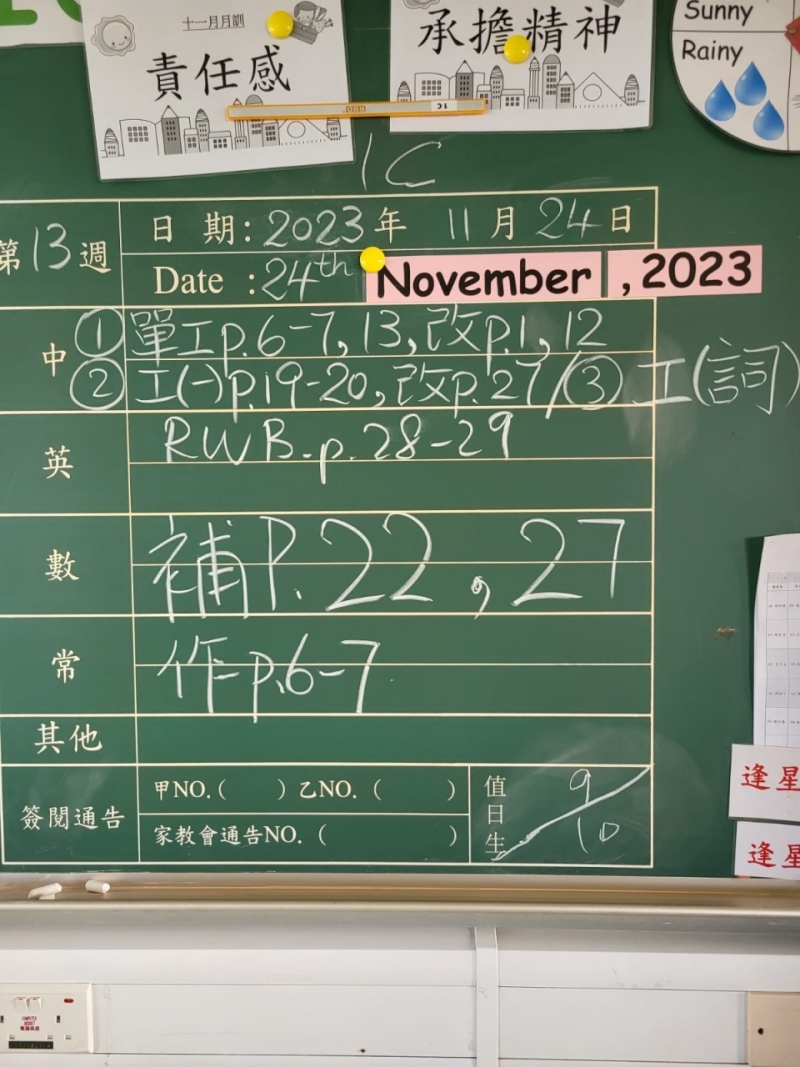 十一月月訓
責任感
承擔精神
Sunny
Rainy
1C
1C
第13週
日 期：2023年 11月24日
Date :24th November , 2023
中 ① 單工p.6-7, 13, 改p.1, 12
② 工(一)p.19-20, 改p.27/③ 工(詞)
英 RWB.p.28-29
數 補P.22, 27
常 作p.6-7
其他
簽閱通告
甲NO.( ) 乙NO. ( )
家教會通告NO. ( )
值日生 9/10
逢星
逢星